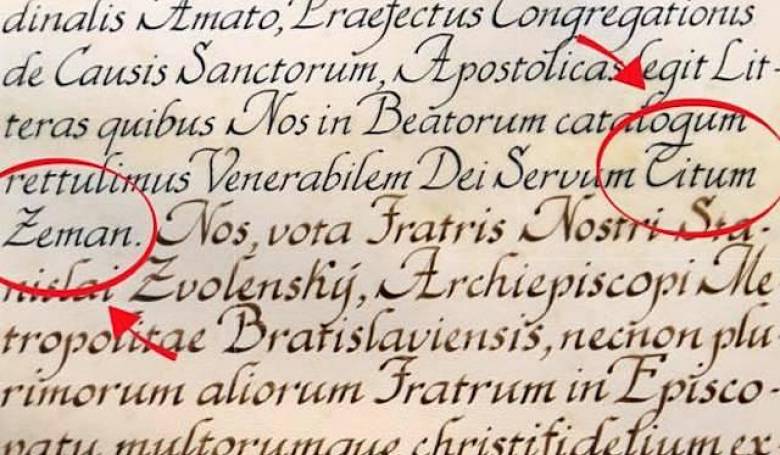 dinalis Amato, Praefectus Congregationis
de Causis Sanctorum, Apostolicas legit Lit-
teras quibus Nos in Beatorum catalogum
rettulimus Venerabilem Dei Servum Titum
Zeman. Nos, vota Fratris Nostri Sta-
nislai Zvolenský, Archiepiscopi Me
tropolitae Bratislaviensis, necnon plu-
rimorum aliorum Fratrum in Episco-
patu, multorumque christifidelium ex-